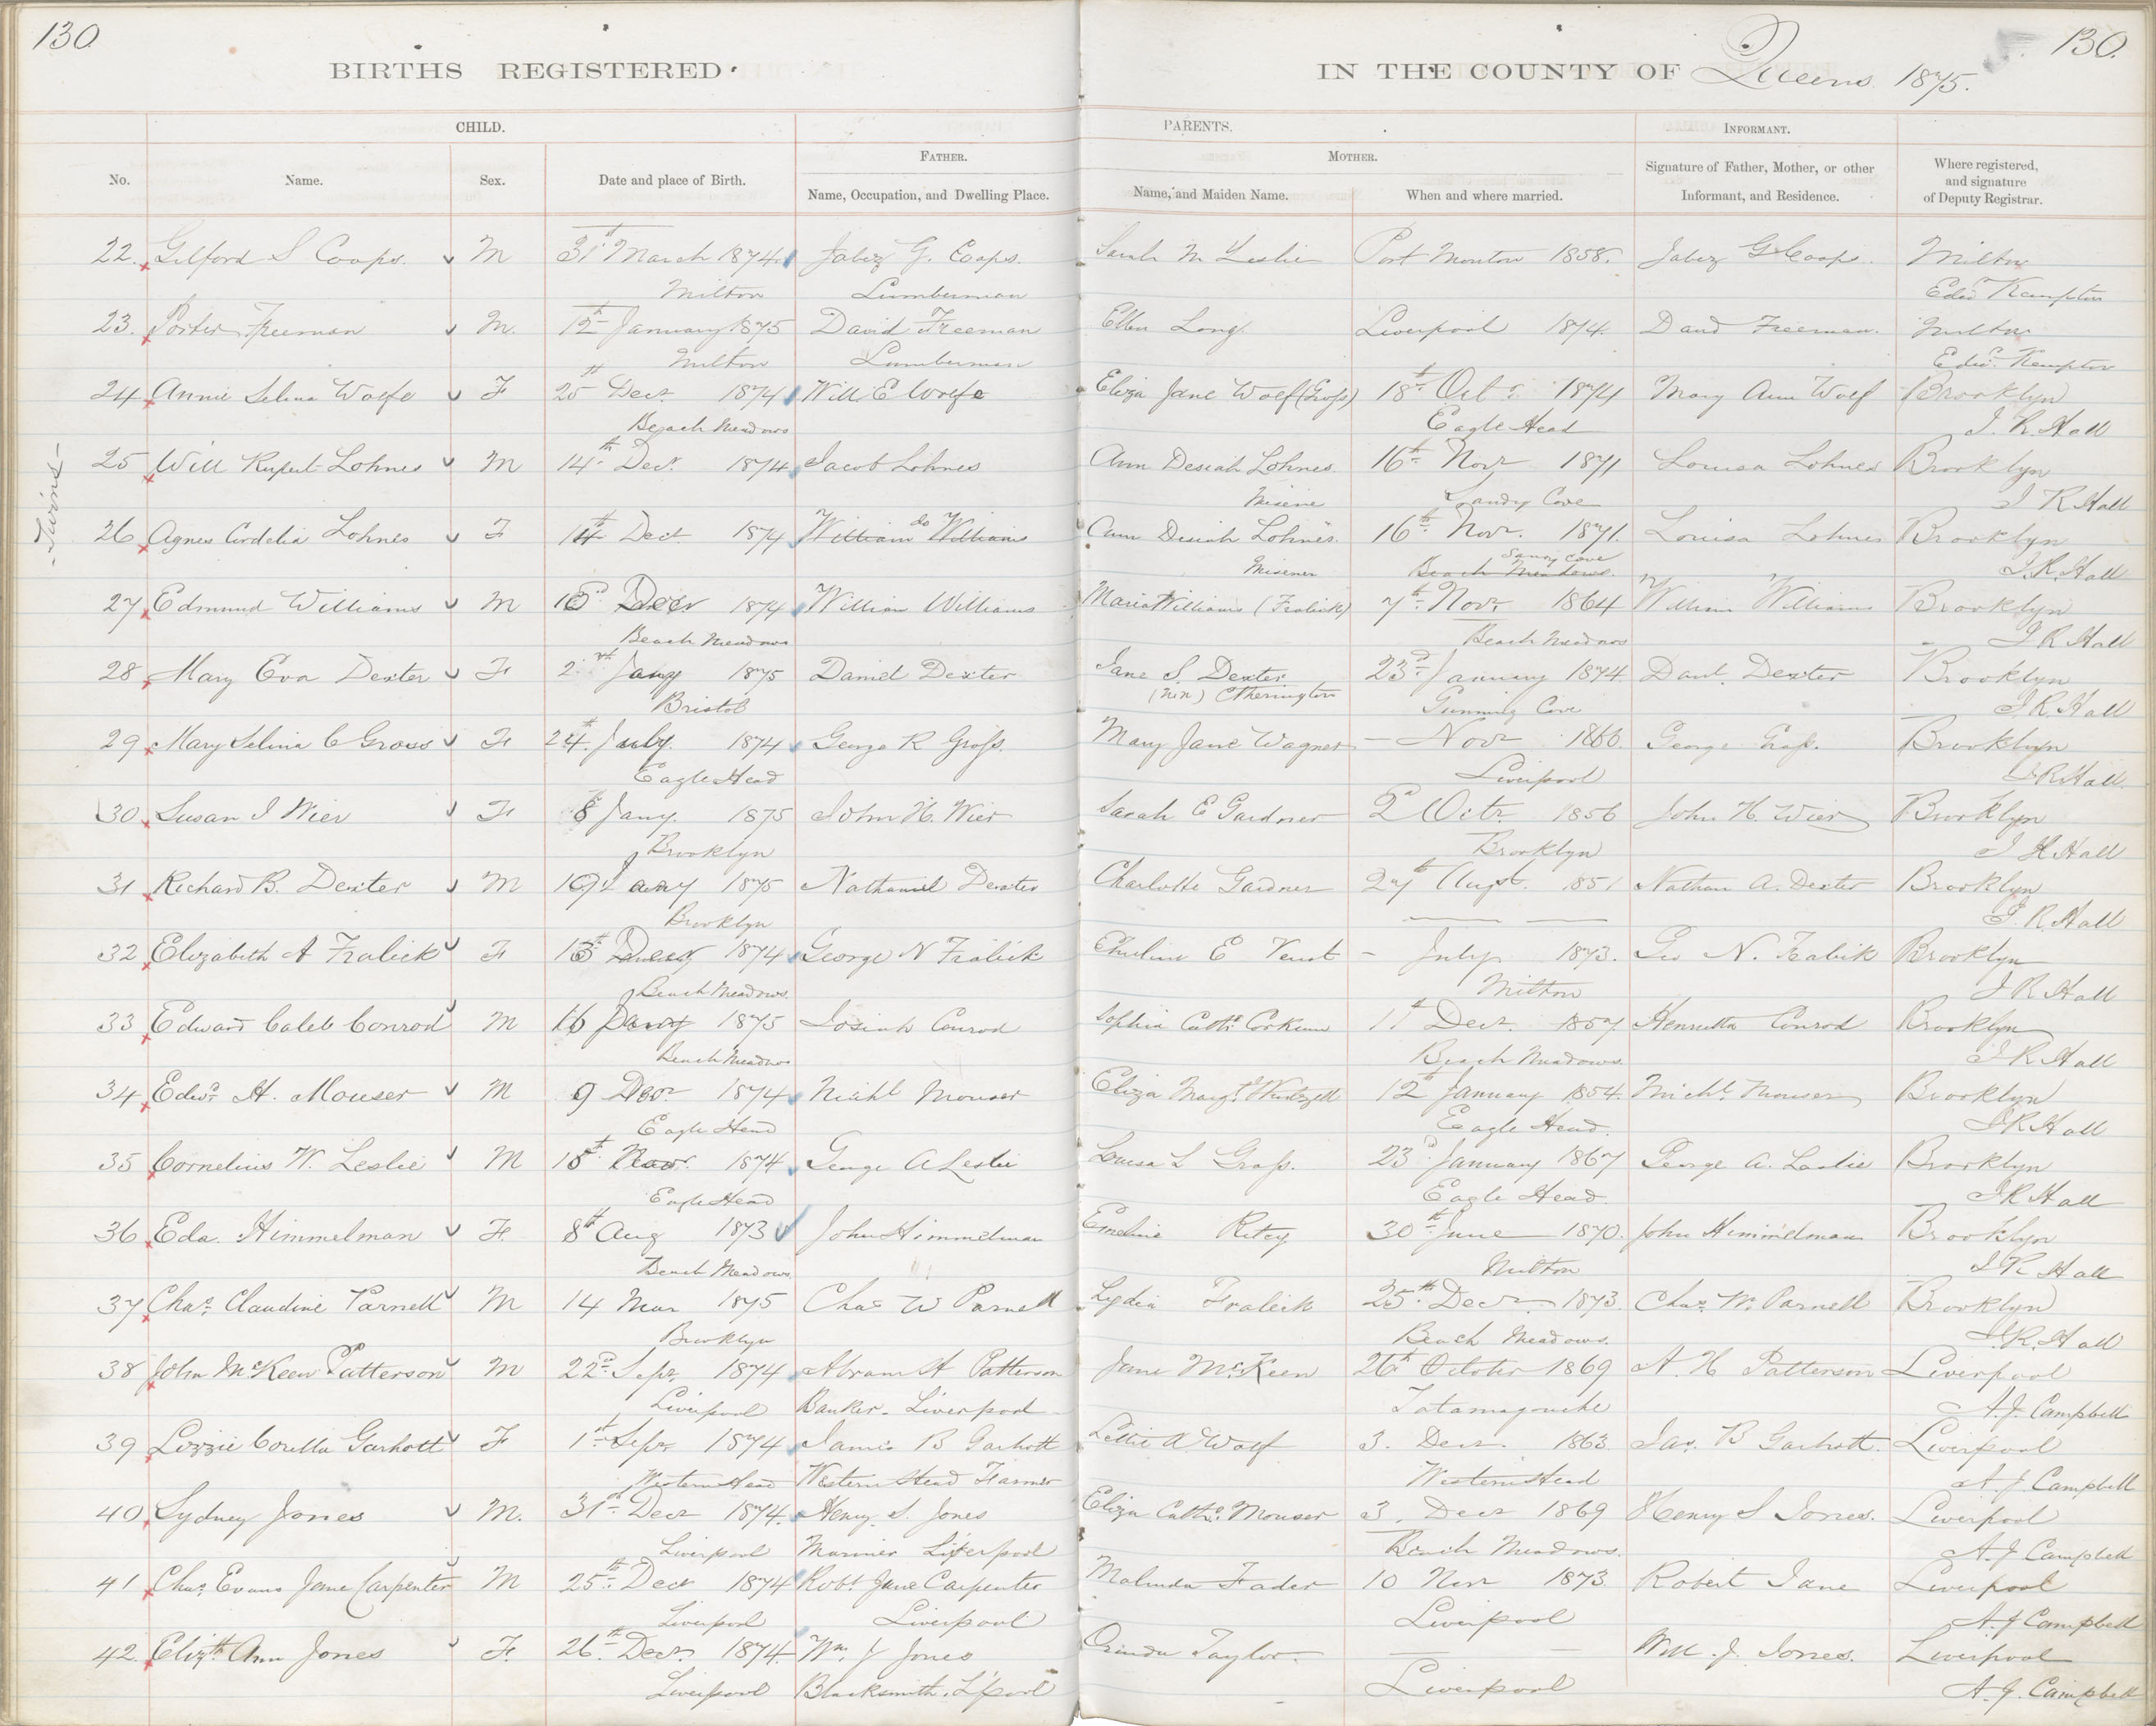 130
130.
BIRTHS REGISTERED
IN THE COUNTY OF Queens 1875.
CHILD.
PARENTS.
INFORMANT.
FATHER.
MOTHER.
No.
Name.
Sex.
Date and place of Birth.
Name, Occupation, and Dwelling Place.
Name, and Maiden Name.
When and where married.
Signature of Father, Mother, or other
Informant, and Residence.
Where registered,
and signature
of Deputy Registrar.
22. Gilford S Coops. M 31st March 1874 Jabez G. Coops. Sarah M Leslie Port Mouton 1858. Jabez G Coops. Milton
Milton Lumberman Edwd Kempton
23. Porter Freeman M. 12th January 1875 David Freeman Ellen Long. Liverpool 1874. David Freeman. Milton
Milton Lumberman Edwd Kempton
24 Annie Selina Wolfe F 25th Decr 1874 Will. E Wolfe Eliza Jane Wolf (Groſs) 18th Octr 1874 Mary Ann Wolf Brooklyn
Beach Meadows Eagle Head J. R. Hall
- Twins -
25 Will Rupert Lohnes M 14th Decr. 1874 Jacob Lohnes Ann Desiah Lohnes. 16th Novr 1871 Louisa Lohnes Brooklyn
Sandy Cove J R Hall
26 Agnes Cordelia Lohnes F 14th Decr. 1874 do William Williams Ann Desiah Lohnes. 16th Novr. 1871. Louisa Lohnes Brooklyn
Misener Sandy Cove Beach Meadows. J. R. Hall
27 Edmund Williams M Decr 1874 William Williams Maria Williams (Fralick) 7th Novr. 1864 William Williams Brooklyn
Beach Meadows Beach Meadows J R Hall
28 Mary Eva Dexter F Jany 1875 Daniel Dexter Jane S. Dexter 23d January 1874 Danl. Dexter Brooklyn
Bristol Etherington Gunning Cove J. R. Hall
29 Mary Selina C Gross F 24th July. 1874 George R Groſs. Mary Jane Wagner - Novr 1866. George Groſs. Brooklyn
Eagle Head Liverpool J R Hall
30 Susan I Wier F 8th Jany. 1875 John H. Wier Sarah E Gardner 2d Octr. 1856 John H. Wier Brooklyn
Brooklyn Brooklyn J R Hall
31 Richard B. Dexter M 19 Jany 1875 Nathaniel Dexter Charlotte Gardner 27th Augt. 1851 Nathan A. Dexter Brooklyn
Brooklyn J. R. Hall
32 Elizabeth A Fralick F Decr 1874 George N Fralick E - July 1873. Geo N. Fralick Brooklyn
Beach Meadows. Milton J R Hall
33 Edward Caleb Conrod M 16 Jany 1875 Josiah Conrod Sophia Cathe. Corkum 11th Decr. 1857. Henrietta Conrod Brooklyn
Beach Meadows Beach Meadows. J R Hall
34 Edwd. H. Mouser M 9 1874 Michl Mouser Eliza Margt. 12th January 1854. Michl. Mouser Brooklyn
Eagle Head Eagle Head. J R Hall
35 Cornelius W. Leslie M 18th Novr. 1874 George A Leslie Louisa L Groſs. 23d January 1867 George A. Leslie Brooklyn
Eagle Head Eagle Head. J R Hall
36 Eda. Himmelman F. 8th Aug 1873 John Himmelman Emeline 30th June 1870. John Himmelman Brooklyn
Beach Meadows Milton J R Hall
37 Chas. Claudine Parnell M 14 Mar 1875 Chas W Parnell Lydia Fralick 25th Decr 1873. Chas. W. Parnell Brooklyn
Brooklyn Beach Meadows. J. R. Hall
38 John McKeen Patterson M 22d Sepr 1874 Abram H Patterson Jane McKeen 26th October 1869 A. H Patterson Liverpool
Liverpool Banker. Liverpool Tatamagouche A. J. Campbell
39 Lizzie Corella F 1st Sepr 1874 James B Lettie A Wolf 3. Decr. 1863. Jas. B Liverpool
Western Head Western Head Farmer Western Head A. J Campbell
40 Sydney Jones M. 31st Decr 1874. Henry S. Jones Eliza Cathe. Mouser 3. Decr 1869 Henry S Jones. Liverpool
Liverpool Mariner Liverpool Beach Meadows. A. J Campbell
41 Chas. Evans Jane Carpenter M 25th Decr 1874 Robt Jane Carpenter Malinda Fader 10 Novr 1873. Robert Jane Liverpool
Liverpool Liverpool Liverpool A. J Campbell
42. Elizth Ann Jones F. 26th Decr. 1874. Wm. J Jones Orinda Taylor. Wm. J. Jones. Liverpool
Liverpool Blacksmith. L'pool Liverpool A. J. Campbell